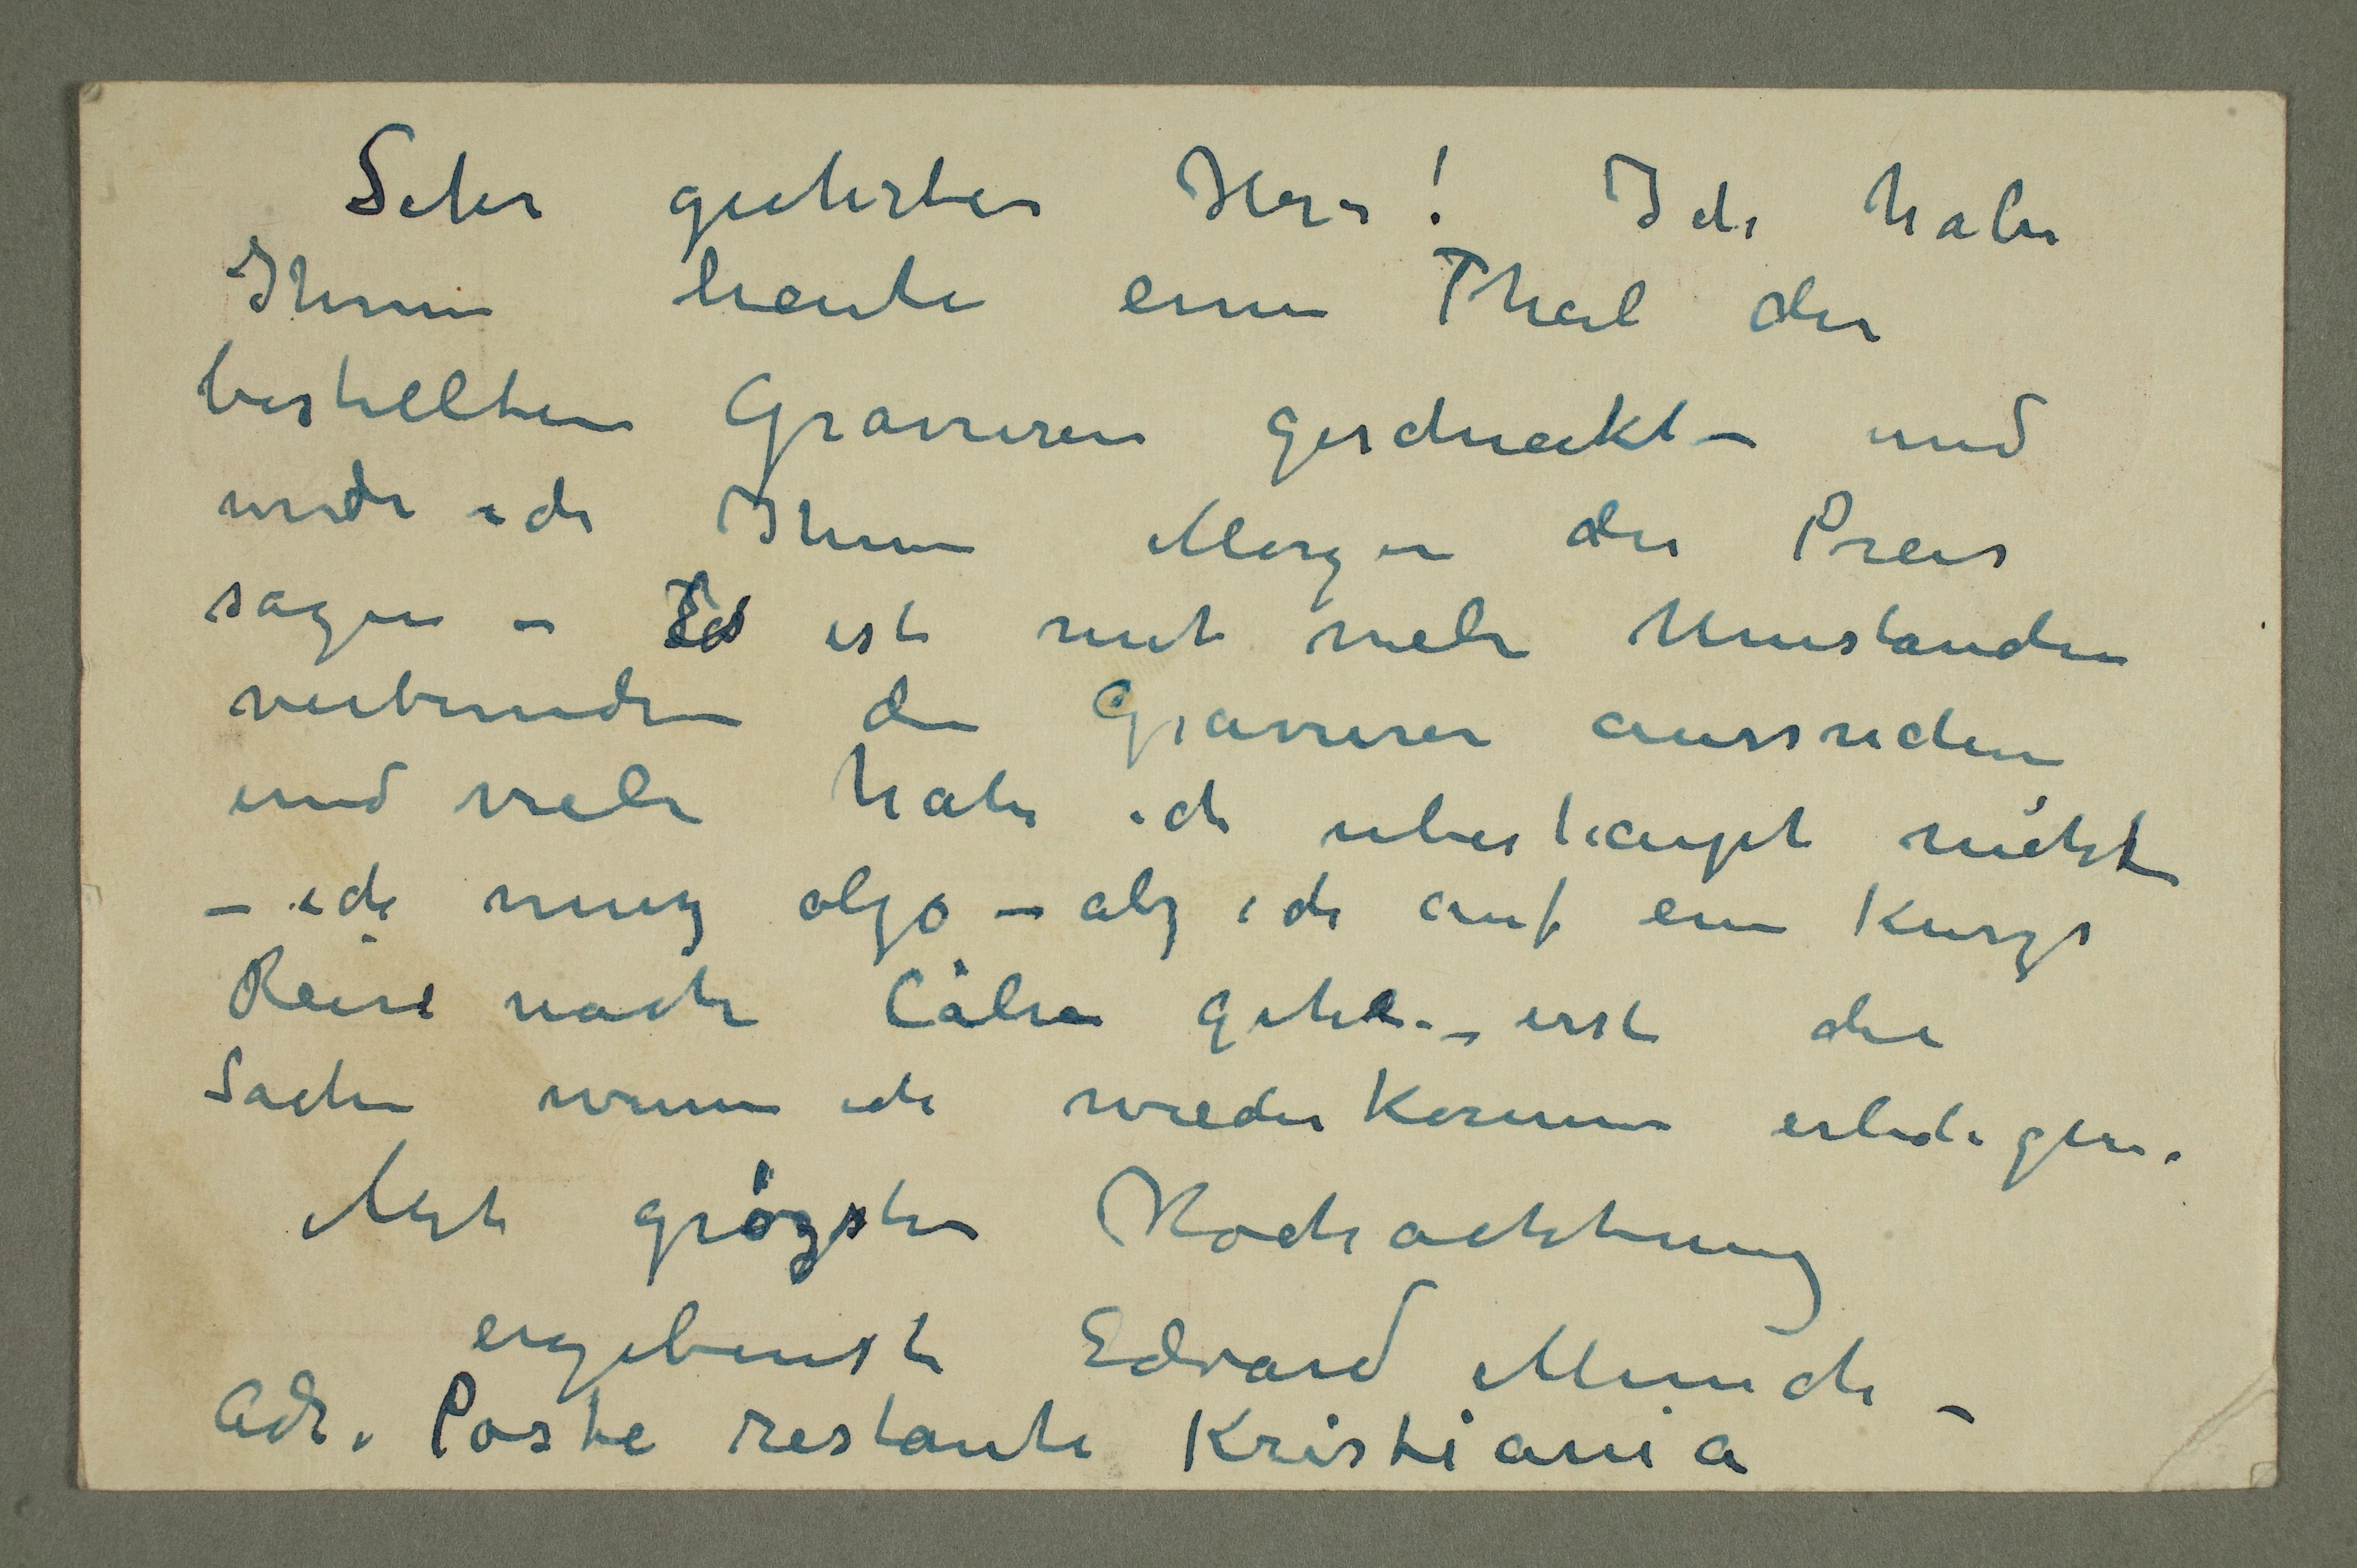 Sehr geehrter Herr! Ich habe
Ihnen heute einen Theil der
bestellten Gravuren geschickt – und
werde ich Ihnen Morgen den Preis
sagen – Es ist mit viele Umstanden
verbunden die Gravuren aussuchen
und viele habe ich uberhaupt nicht
– ich muz alzo – alz ich auf eine Kurze
Reise nach Cöln gehe – erst die
Sachen wenn ich wieder komme erledigen.
Mit grözster Hochachtung
ergebenst Edvard Munch –
Adr. Poste restante Kristiania